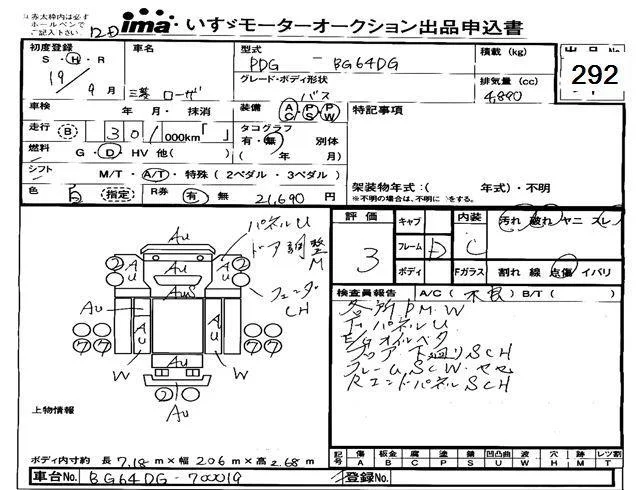 ※赤太枠内は必ず
ボールペンで
ご記入下さい
ima いすゞモーターオークション出品申込書
初度登録 車名 型式 PDG - BG64DG 積載(kg) 出品No.
S・H・R
19年 9月 三菱 ローザ
グレード・ボディ形状 バス
排気量(cc) 4,890
292
車検 年 月・ 抹消
装備 AC・PS・PW
特記事項
走行 B 301,000km「 」
タコグラフ 有・無 別体 ( 年 月)
燃料 G・D・HV 他( )
シフト M/T・A/T・特殊(2ペダル・3ペダル)
架装物年式:( 年式)・不明
※不明の場合は、不明に○をする。
色 (指定) R券 有 無 21,690円
評価 3
キャブ
フレーム D
ボディ
内装 C 汚れ 破れ ヤニ スレ
Fガラス 割れ 線 点傷 イバリ
検査員報告 A/C(不良) B/T( )
各所 P.M.W
下パネルU
E/Gオイルベタ
フロア 下廻りSCH
フレームU, SCW
RエンドパネルSCH
パネルU
ドア調整
M
フェンダ
CH
Au
Au
Au
AuS
Au
Au
Au
Au
W
W
Au
Au
上物情報
ボディ内寸約 長 7.18m×幅 2.06m×高 2.68m
記号 傷A 板金B 腐C 塗P 錆S 凹凸曲U 波W 穴H 跡M レツ割T
車台No. BG64DG-700019
登録No.